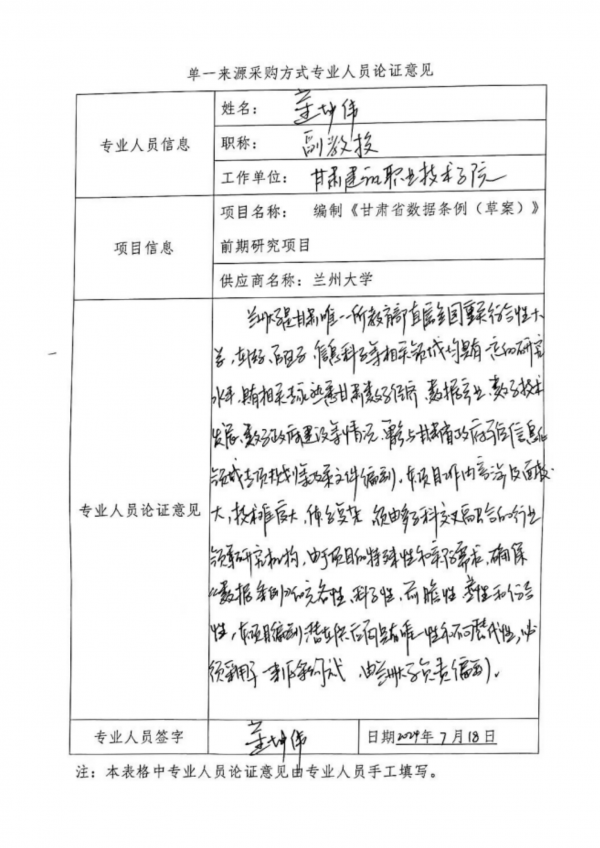 单一来源采购方式专业人员论证意见
专业人员信息
姓名： 董坤伟
职称： 副教授
工作单位： 甘肃建筑职业技术学院
项目信息
项目名称： 编制《甘肃省数据条例（草案）》
前期研究项目
供应商名称：兰州大学
专业人员论证意见
兰州大学是甘肃唯一一所教育部直属全国重点综合性大
学，
信息科学等相关领域均具有一定的研究
水平，具有相关专家熟悉甘肃数字经济、数据产业、数字技术
发展、数字政府建设等情况，曾参与甘肃省政府
领域专项规划等政策文件编制。本项目工作内容涉及面较
大，技术难度大，体系复杂，须由多学科交叉融合的行业
领军研究机构，由于项目的特殊性和实际要求，确保
《数据条例》的完备性、科学性、前瞻性、
和综合
性，本项目编制潜在供应商具有唯一性和不可替代性，必
须采用单一来源采购方式，由兰州大学负责编制。
专业人员签字
董坤伟
日期2024年7月18日
注：本表格中专业人员论证意见由专业人员手工填写。